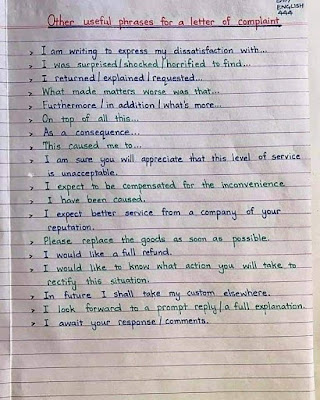 ENGLISH
444
Other useful phrases for a letter of complaint
> I am writing to express my dissatisfaction with...
> I was surprised/shocked/horrified to find...
> I returned/explained/requested...
> What made matters worse was that...
> Furthermore/in addition/what's more...
> On top of all this...
> As a consequence...
> This caused me to...
> I am sure you will appreciate that this level of service
is unacceptable.
> I expect to be compensated for the inconvenience
> I have been caused.
> I expect better service from a company of your
reputation.
> Please replace the goods as soon as possible.
> I would like a full refund.
> I would like to know what action you will take to
rectify this situation.
> In future I shall take my custom elsewhere.
> I look forward to a prompt reply/a full explanation.
> I await your response/comments.